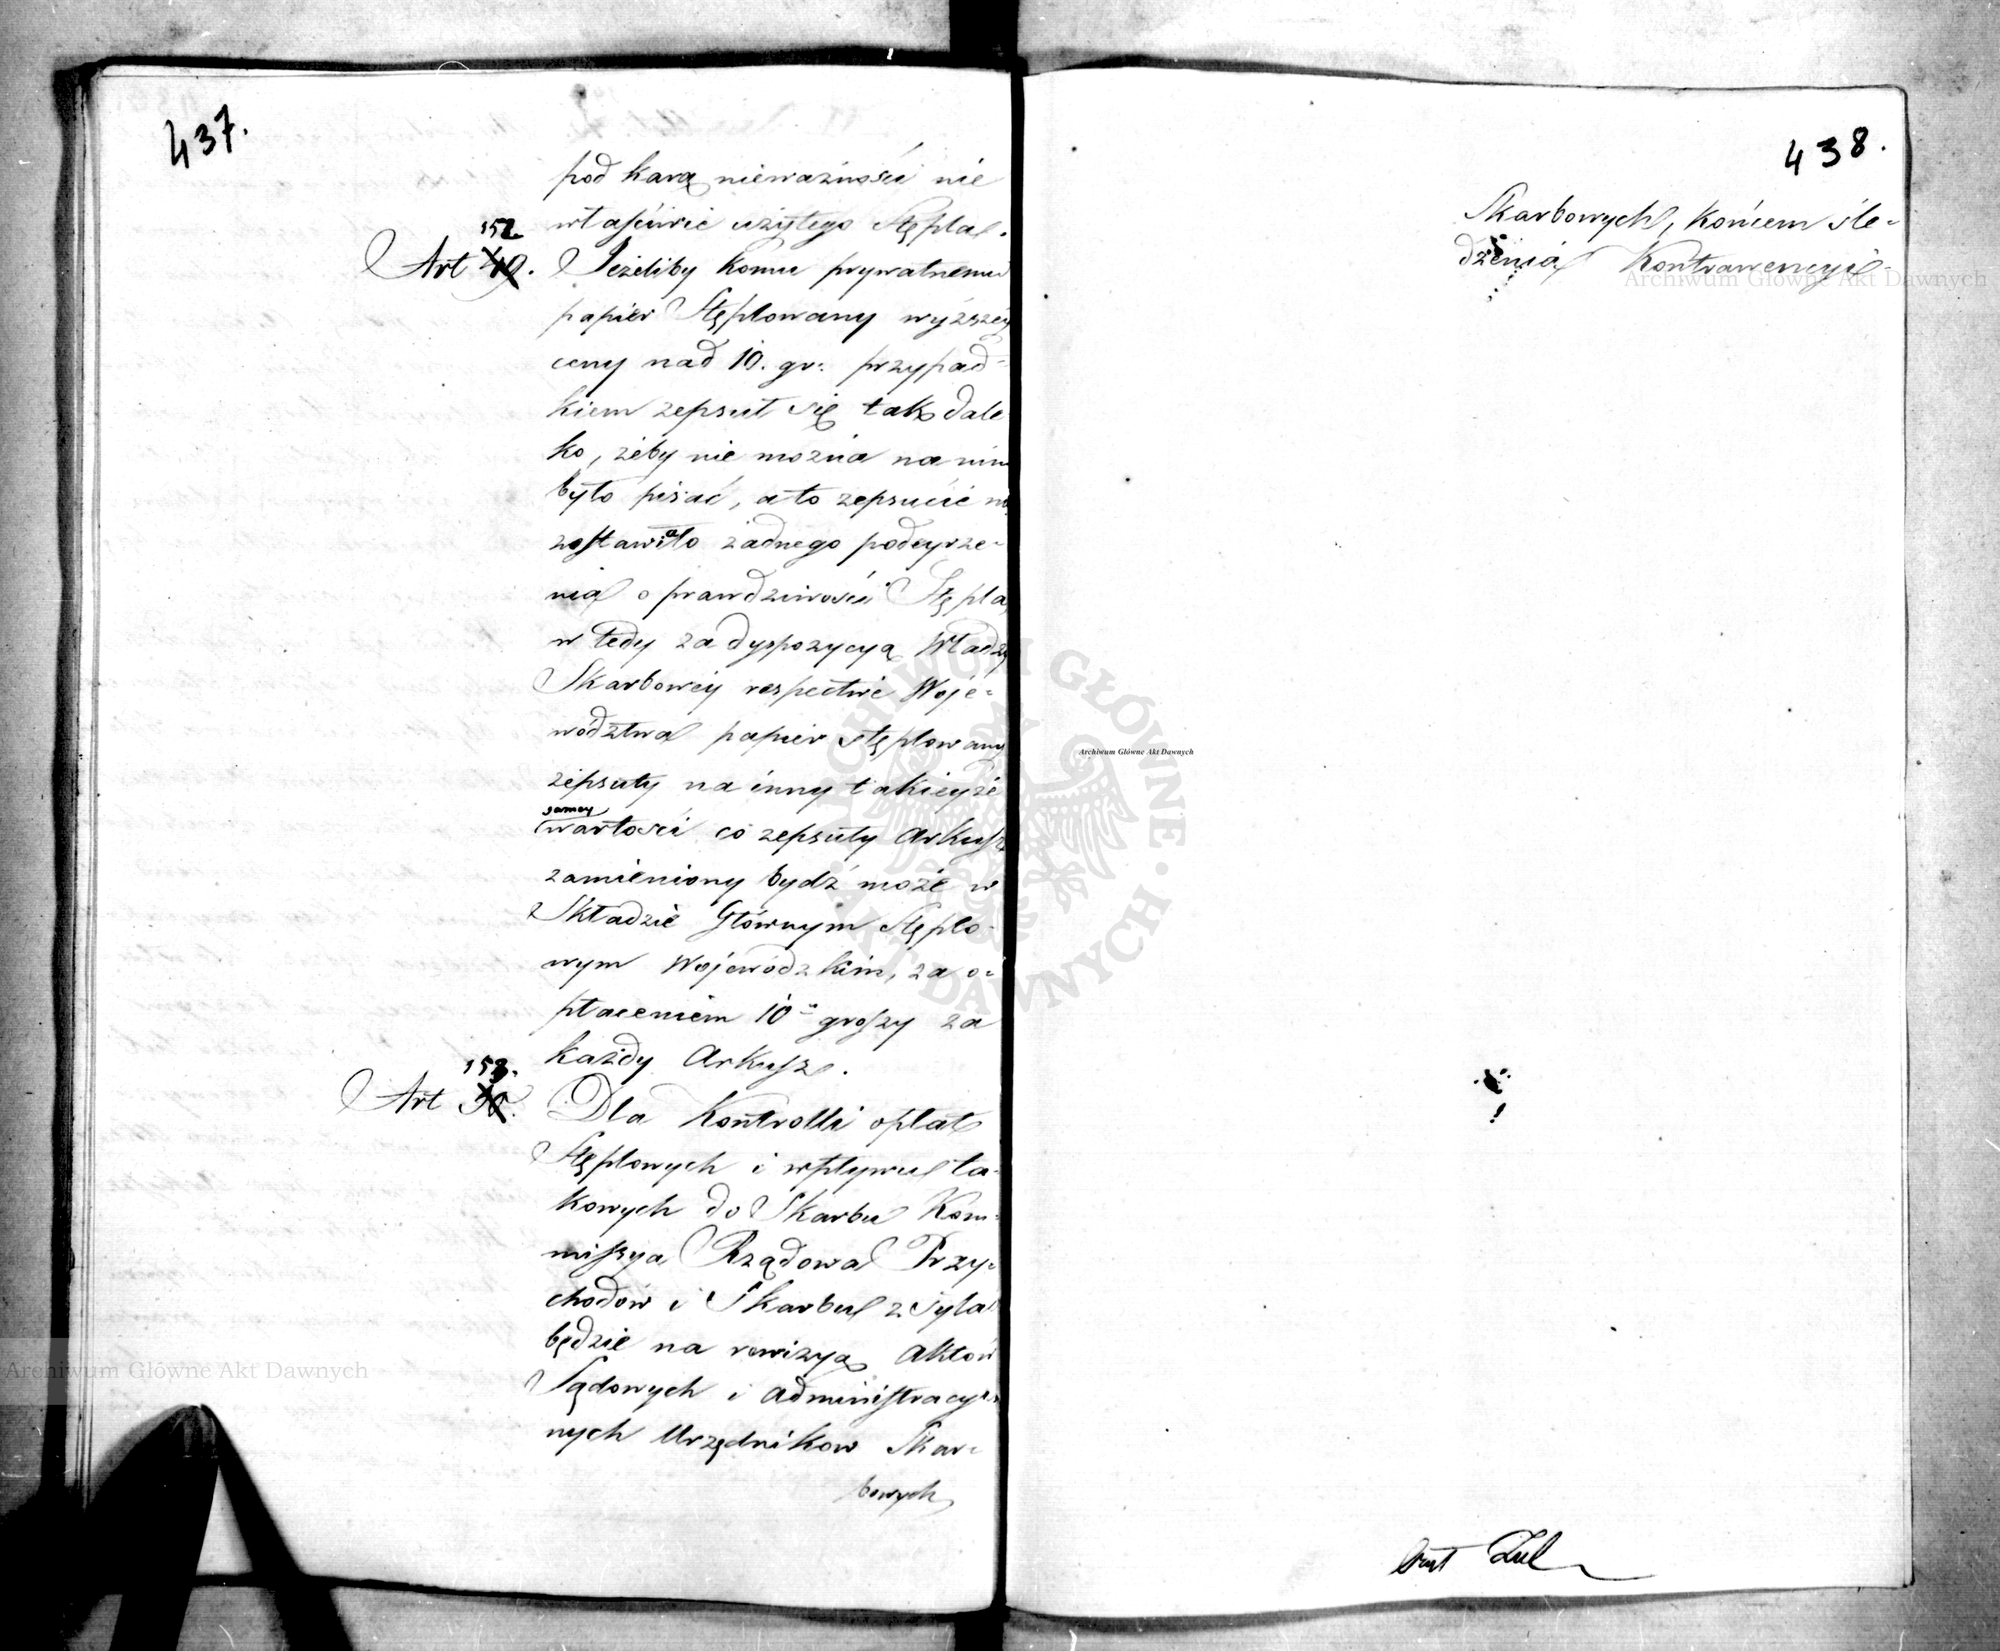 437.
pod karą nieważności nie
właściwie użytego Stępla.
152.
Art 49. Jeżeliby komu prywatnemu
papier Stęplowany wyższey
ceny nad 10. gr: przypad-
kiem zepsuł się tak dale
ko, żeby nie można na nim
było pisać, a to zepsucie nie
zostawiało żadnego podeyrze-
nia o prawdziwości Stępla,
w tedy za dyspozycyą Władzy
Skarbowey respective Woje-
wództwa papier stęplowany
zepsuty na inny takieyże
samey
wartości co zepsuty Arkusz
zamieniony bydź może w
Składzie Głównym Stęplo-
wym Wojewódzkim, za o-
płaceniem 10 groszy za
każdy Arkusz.
153.
Art 50. Dla Kontrolli opłat
Stęplowych i wpływu ta-
kowych do Skarbu Kom-
missya Rządowa Przy-
chodów i Skarbu zsyłać
będzie na rewizyą Aktów
Sądowych i Administracyi-
nych Urzędników Skar-
bowych
438.
Skarbowych, końcem śle-
dzenia Kontrawencyi.
Archiwum Główne Akt Dawnych
Archiwum Główne Akt Dawnych
ARCHIWUM GŁÓWNE AKT DAWNYCH
Archiwum Główne Akt Dawnych